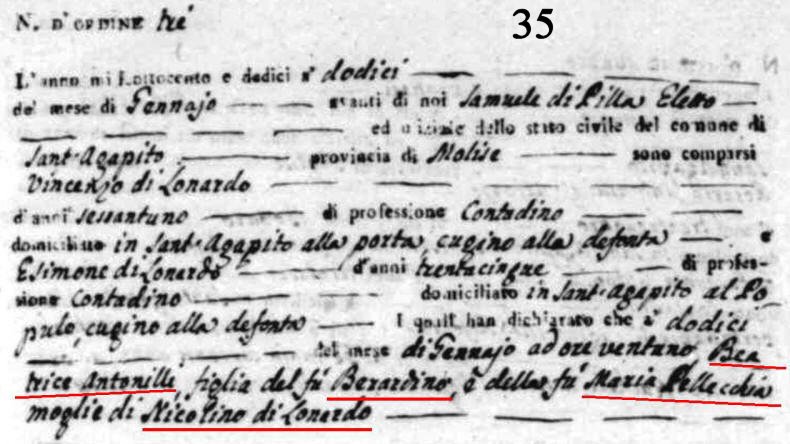 35
N. D'ORDINE tré
L'anno mi lottocento e dodici a' dodici
de' mese di Gennajo avanti di noi Samuele di Pilla Eletto
ed uficiale dello stato civile del comune di
Sant'Agapito provincia di Molise sono comparsi
Vincenzo di Lonardo
d'anni sessantuno di professione Contadino
domiciliato in Sant'Agapito alla porta, cugino alla defonta e
Esimone di Lonardo d'anni trentacinque di profes-
sione Contadino domiciliato in Sant'Agapito al Po
pulo, cugino alla defonta I quali han dichiarato che a' dodici
del mese di Gennajo ad ore ventuno, Bea
trice Antonilli, figlia del fù Berardino, è della fù Maria Pellecchia
moglie di Nicolino di Lonardo